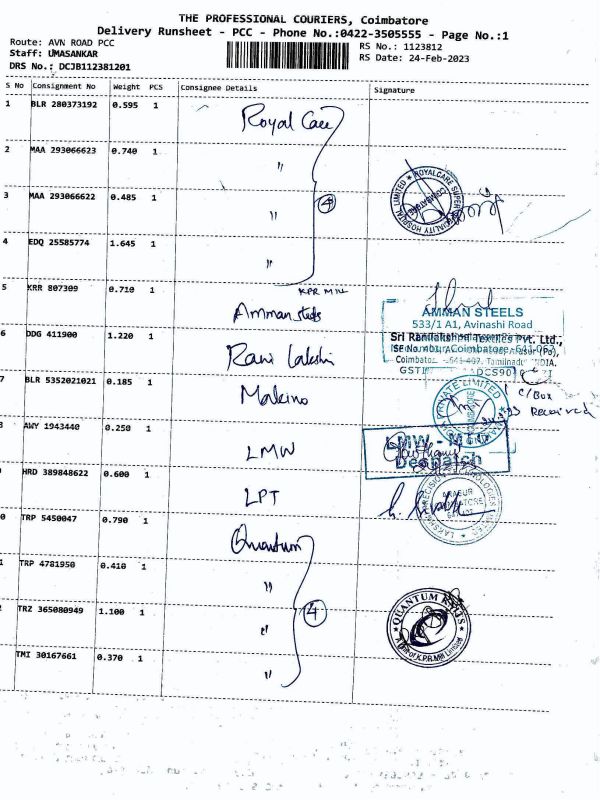 THE PROFESSIONAL COURIERS, Coimbatore
Delivery Runsheet - PCC - Phone No.:0422-3505555 - Page No.:1
Route: AVN ROAD PCC
RS No.: 1123812
Staff: UMASANKAR
RS Date: 24-Feb-2023
DRS No.: DCJB112381201
S No Consignment No Weight PCS Consignee Details Signature
1 BLR 280373192 0.595 1 Royal Care
2 MAA 293066623 0.740 1 "
3 MAA 293066622 0.485 1 "
4
ROYALCARE SUPER SPECIALITY HOSPITAL LIMITED
COIMBATORE
4 EDQ 25585774 1.645 1 "
KPR Mill
5 KRR 807309 0.710 1 Amman steels
AMMAN STEELS
533/1 A1, Avinashi Road
6 DDG 411900 1.220 1 Rani Lakshmi
Textiles Pvt. Ltd.,
7 BLR 5352021021 0.185 1 Makino
PRIVATE LIMITED
C/Box
Received
AWY 1943440 0.250 1 LMW
LMW - MTD
Despatch
HRD 389848622 0.600 1 LPT
ARASUR
0 TRP 5450047 0.790 1 Quantum
1 TRP 4781950 0.410 1 "
TRZ 365080949 1.100 1 "
4
QUANTUM KNITS
K.P.R. Mill Limited
TMI 30167661 0.370 1 "